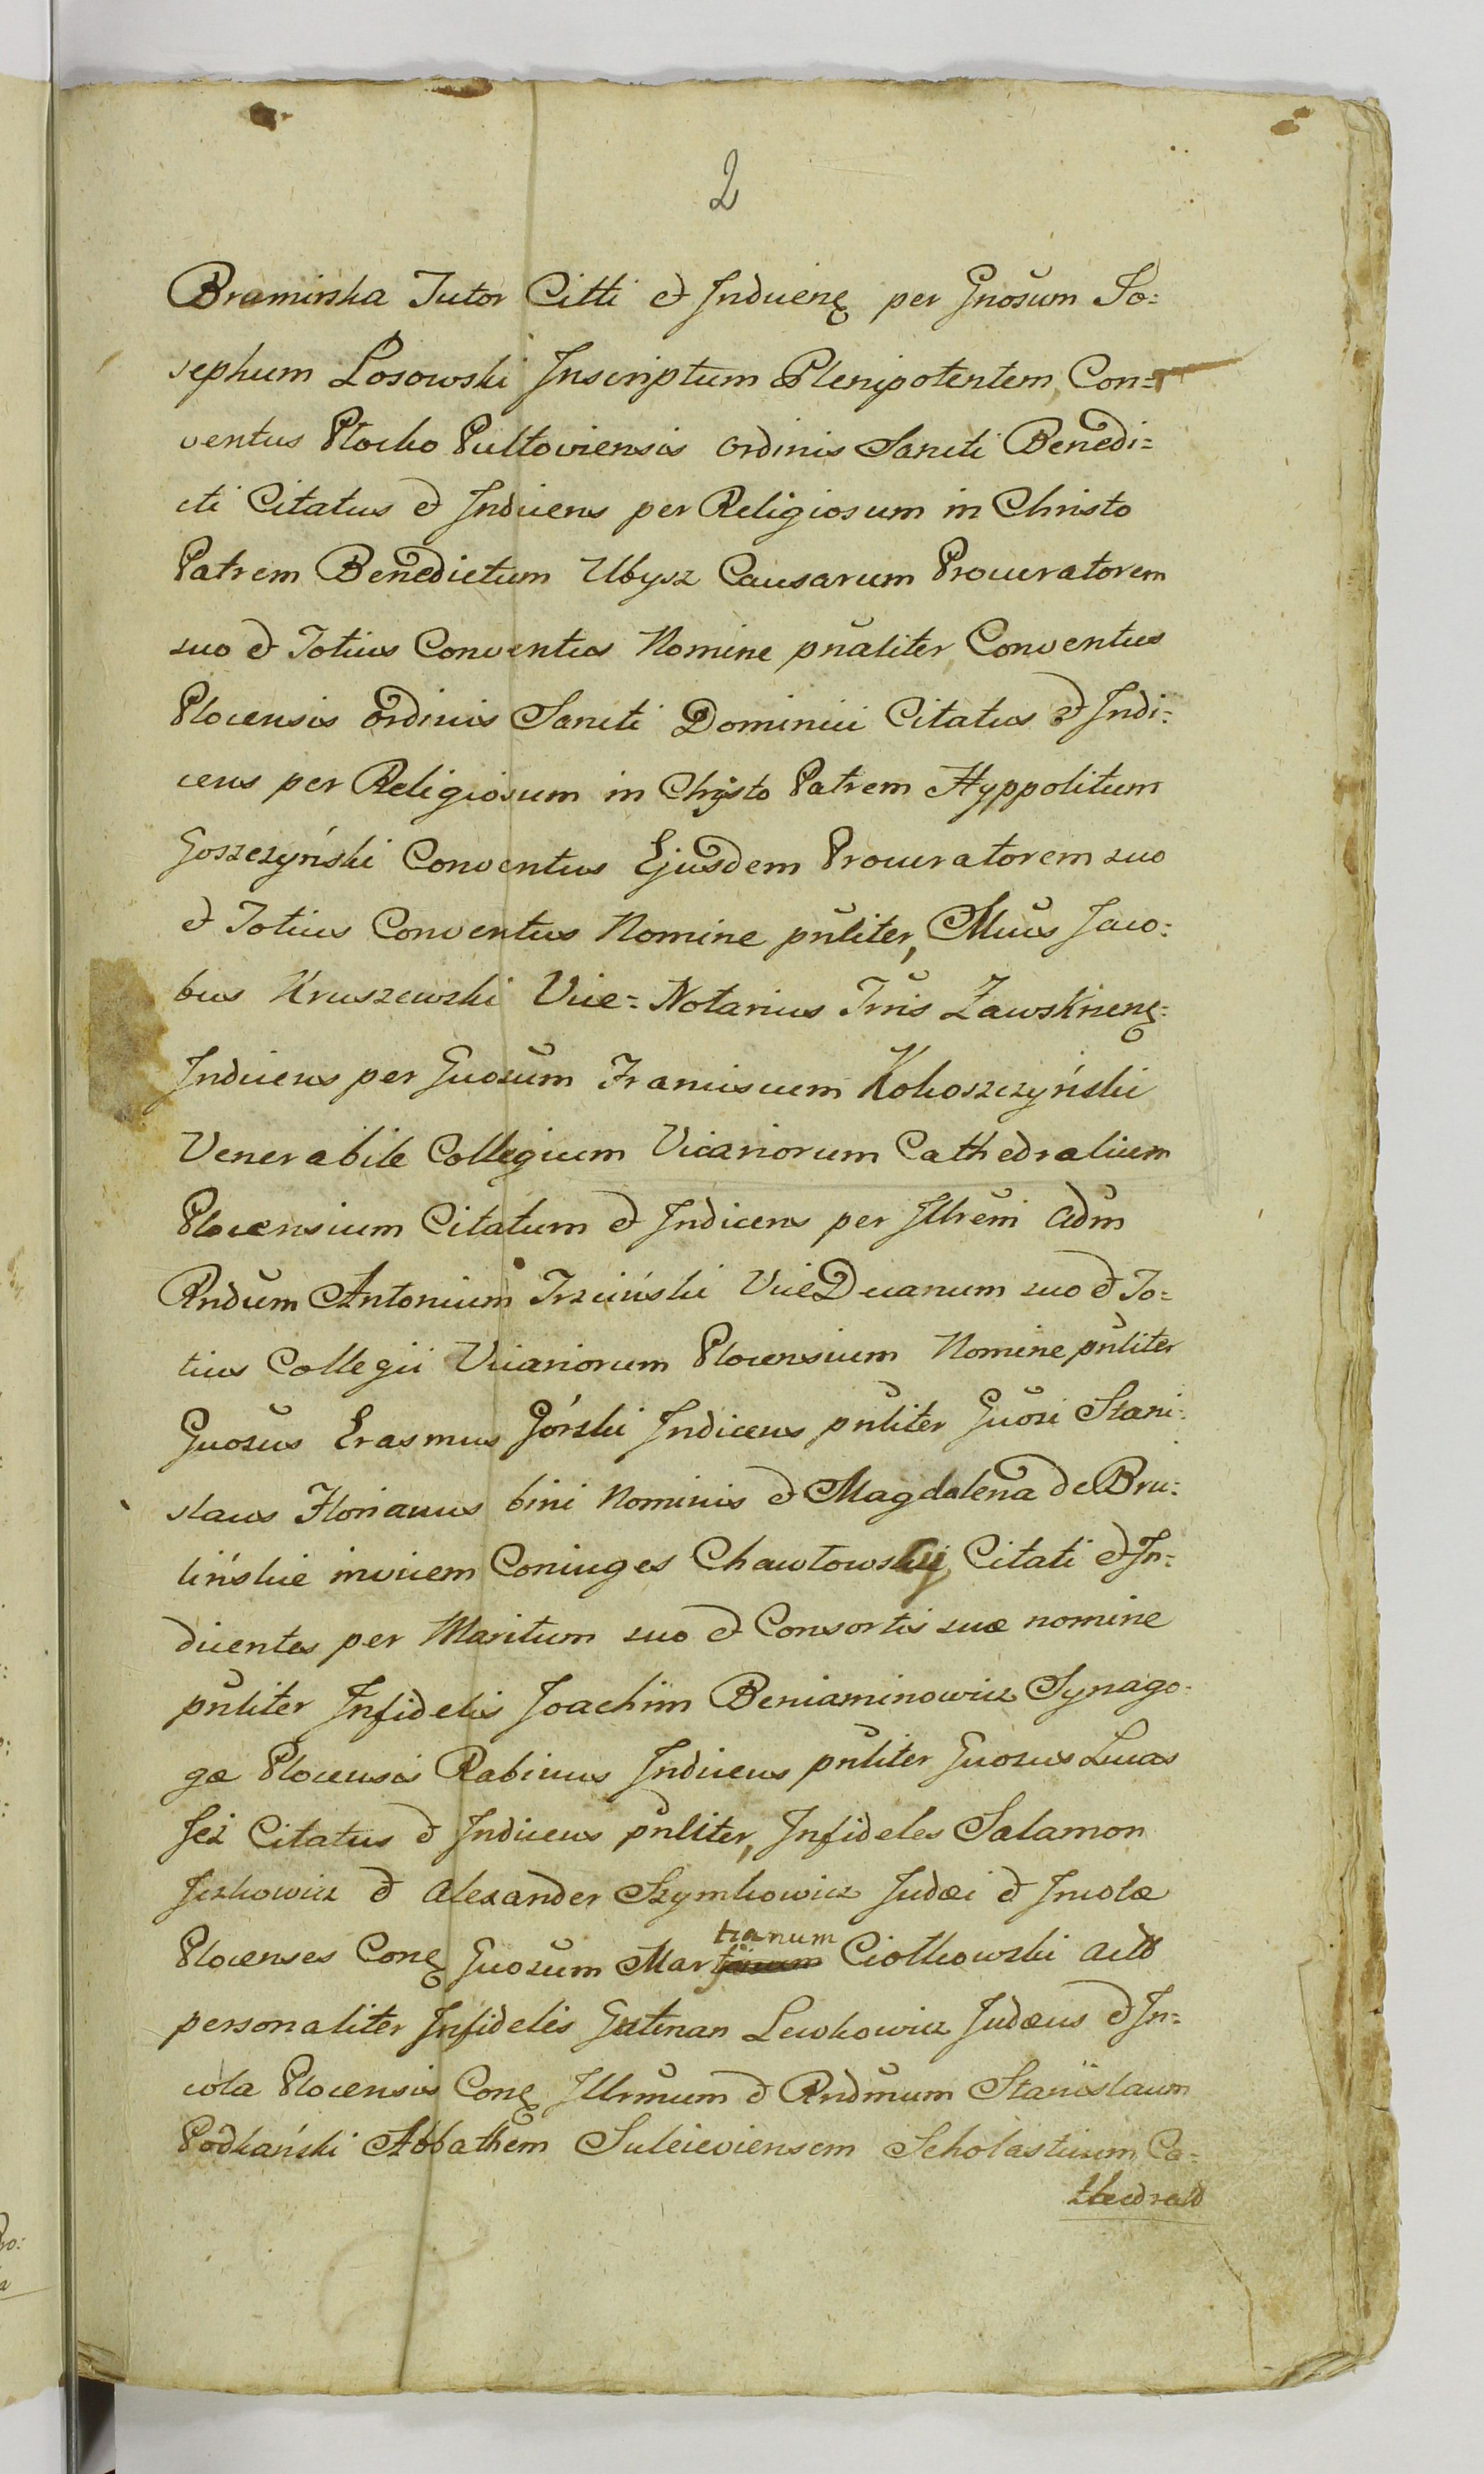 2
Bramińska Tutor Citti et Indicenę per Gnosum Jo=
sephum Losowski Inscriptum Plenipotentem, Con=
ventus Płocko Pułtoviensis Ordinis Sancti Benedi=
cti Citatus et Indicens per Religiosum in Christo
Patrem Benedictum Ubysz Causarum Procuratorem
suo et Totius Conventus Nomine pnaliter, Conventus
Plocensis Ordinis Sancti Dominici Citatus et Indi=
cens per Religiosum in Christo Patrem Hyppolitum
Goszczyński Conventus Ejusdem Procuratorem suo
et Totius Conventus Nomine pnliter, Mcus Jaco=
bus Kruszewski Vice=Notarius Trris Zawskrnenę=
Indicens per Gnosum Franciscum Kokoszczyński
Venerabile Collegium Vicariorum Cathedralium
Plocensium Citatum et Indicens per Illrem Adm
Rndum Antonium Trzciński ViceDecanum suo et To=
tius Collegii Vicariorum Plocensium Nomine pnliter
Gnosus Erasmus Górski Indicens pnliter Gnosi Stani=
slaus Florianus bini Nominis et Magdalena de Bru=
lińskie invicem Coniuges Chawłowscy Citati et In=
dicentes per Maritum suo et Consortis suæ nomine
pnliter Infidelis Joachim Beniaminowicz Synago=
gæ Plocensis Rabinus Indicens pnliter Gnosus Lucas
Jeż Citatus et Indicens pnliter, Infideles Salamon
Jczkowicz et Alexander Szymkowicz Judæi et Incolæ
Plocenses Conę Gnosum Martianum Ciołkowski act
personaliter Infidelis Gutman Lewkowicz Judæus et In=
cola Plocensis Conę Illrmum et Rndmum Stanislaum
Podkański Abbathem Suleieviensem Scholasticum Ca=
thedral